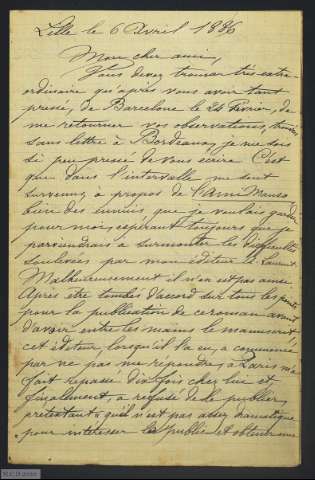 Lille le 6 Avril 1886
Mon cher ami,
Vous devez trouver très extra-
ordinaire qu'après vous avoir tant
pressé, de Barcelone le 24 Février, de
me retourner vos observations,
sous lettre à Bordeaux, je me sois
si peu pressé de vous écrire. C'est
que dans l'intervalle me sont
survenus à propos de l'ami Manso
bien des ennuis que je voulais garder
pour moi, espérant toujours que je
parviendrais à surmonter les difficultés
soulevées par mon éditeur
Malheureusement il n'en est pas ainsi
Après être tombés d'accord sur tous les points
pour la publication de ce roman avant
d'avoir entre les mains le manuscrit,
cet éditeur, lorsqu'il l'a eu, a commencé
par ne pas me répondre, à Paris m'a
fait repasser dix fois chez lui et
finalement, a refusé de le publier,
prétextant qu'il n'est pas assez dramatique
pour intéresser le public et obtenir une